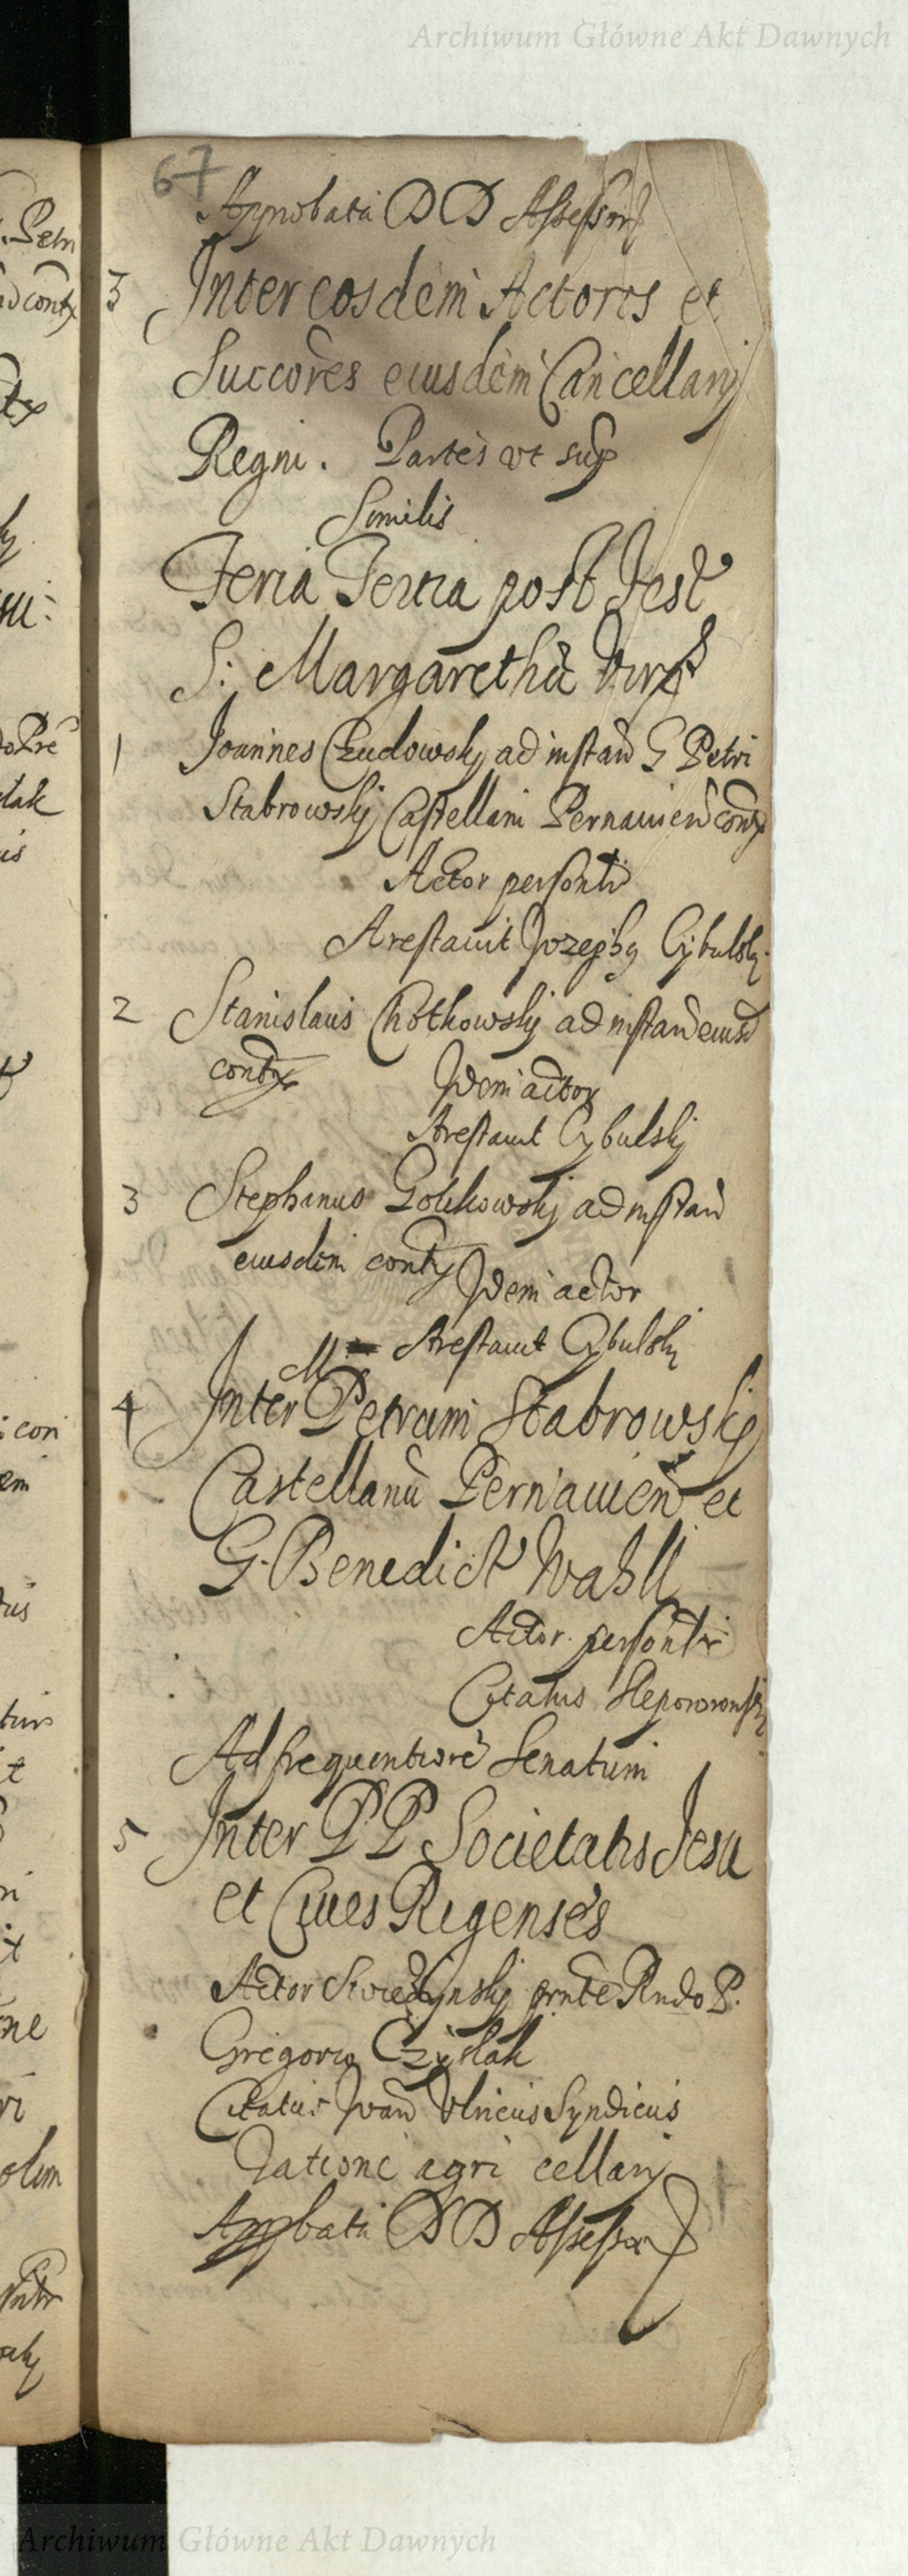 Archiwum Główne Akt Dawnych
67
Approbata D D Assessor
3 Inter eosdem Actores et
Succores eiusdem Cancellarij
Regni. Partes vt sup
Similis
Feria Tertia post Fest
S: Margarethæ Virg
1 Joannes Czudowskj ad instan G Petri
Stabrowskj Castellani Pernauien contx
Actor personlr
Arestauit Jozephg Cybulskj
2 Stanislaus Chotkowskj ad instan eiusd
contx Idem actor
Arestauit Cybulskj
3 Stephanus Golikowskj ad instan
eiusdem contx Idem actor
Arestauit Cybulskj
4 Inter M. Petrum Stabrowskj
Castellanū Pernauien et
G. Benedict Wahll
Actor personlr
Citatus Slepowronskj
Ad frequentiore Senatum
5 Inter P P Societatis Jesu
et Ciues Rigenses
Actor Swiedzynskj prnte Rndo P.
Gregorio Czyslak
Citatus Ivan Vlricus Syndicus
Ratione agri cellarj
Appbata D D Assessor
Archiwum Główne Akt Dawnych